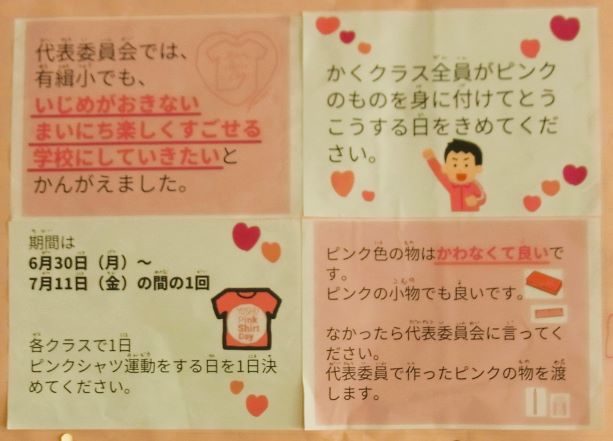 代表委員会では、
有緝小でも、
いじめがおきない
まいにち楽しくすごせる
学校にしていきたいと
かんがえました。
かくクラス全員がピンク
のものを身に付けてとう
こうする日をきめてくだ
さい。
期間は
6月30日（月）～
7月11日（金）の間の1回
各クラスで1日
ピンクシャツ運動をする日を1日決
めてください。
Pink
Shirt
Day
ピンク色の物はかわなくて良いで
す。
ピンクの小物でも良いです。
なかったら代表委員会に言ってく
ださい。
代表委員で作ったピンクの物を渡
します。